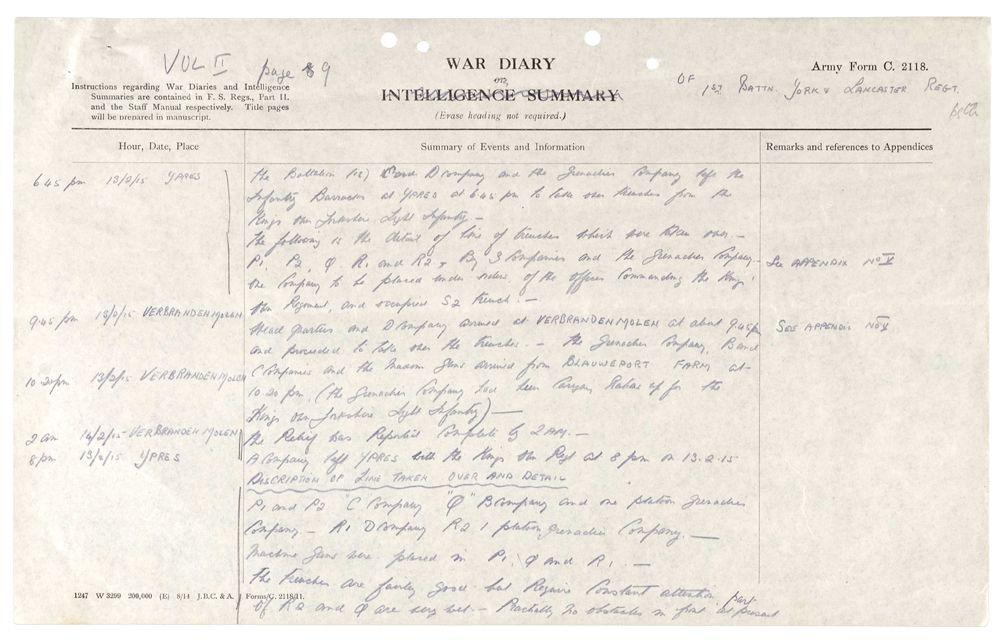 VOL II page 9
WAR DIARY
or
INTELLIGENCE SUMMARY
(Erase heading not required.)
Army Form C. 2118.
OF 1ST BATTN. YORK & LANCASTER REGT.
Instructions regarding War Diaries and Intelligence
Summaries are contained in F. S. Regs., Part II.
and the Staff Manual respectively. Title pages
will be prepared in manuscript.
Hour, Date, Place
Summary of Events and Information
Remarks and references to Appendices
6.45 pm 13/2/15 YPRES
The Battalion and D Company and the Grenadier Company left the
Infantry Barracks at YPRES at 6.45 pm to take over trenches from the
Kings Own Yorkshire Light Infantry. —
The following is the detail of line of trenches which were taken over. —
P1, P2, Q, R1 and R2, By 3 Companies and the Grenadier Company. —
See APPENDIX No V
One Company to be placed under orders of the Officer Commanding the Kings
Own Regiment, and occupied S2 trench. —
9.45 pm 13/2/15 VERBRANDENMOLEN
Head Quarters and D Company arrived at VERBRANDENMOLEN at about 9.45 pm
SEE APPENDIX No V
and proceeded to take over the trenches. — The Grenadier Company, B and
C Companies and the Maxim Guns arrived from BLAUWEPORT FARM at
10.20 pm 13/2/15 VERBRANDENMOLEN
10.20 pm. (The Grenadier Company had been carrying Rations up for the
Kings Own Yorkshire Light Infantry) —
2 am 14/2/15 VERBRANDENMOLEN
The Relief was Reported Complete by 2 AM. —
8 pm 13/2/15 YPRES
A Company left YPRES with the Kings Own Regt at 8 pm on 13.2.15
DISCRIPTION OF LINE TAKEN OVER AND DETAIL
P1 and P2 "C Company "Q" B Company and one platoon Grenadier
Company. — R1 D Company R2 1 platoon Grenadier Company. —
Machine Guns were placed in P1, Q and R1. —
The trenches are fairly good but Require Constant attention, part
of R2 and Q are very wet. — Practically no obstacles in front at present
1247 W 3299 200,000 (E) 8/14 J.B.C. & A. Forms/C. 2118/11.